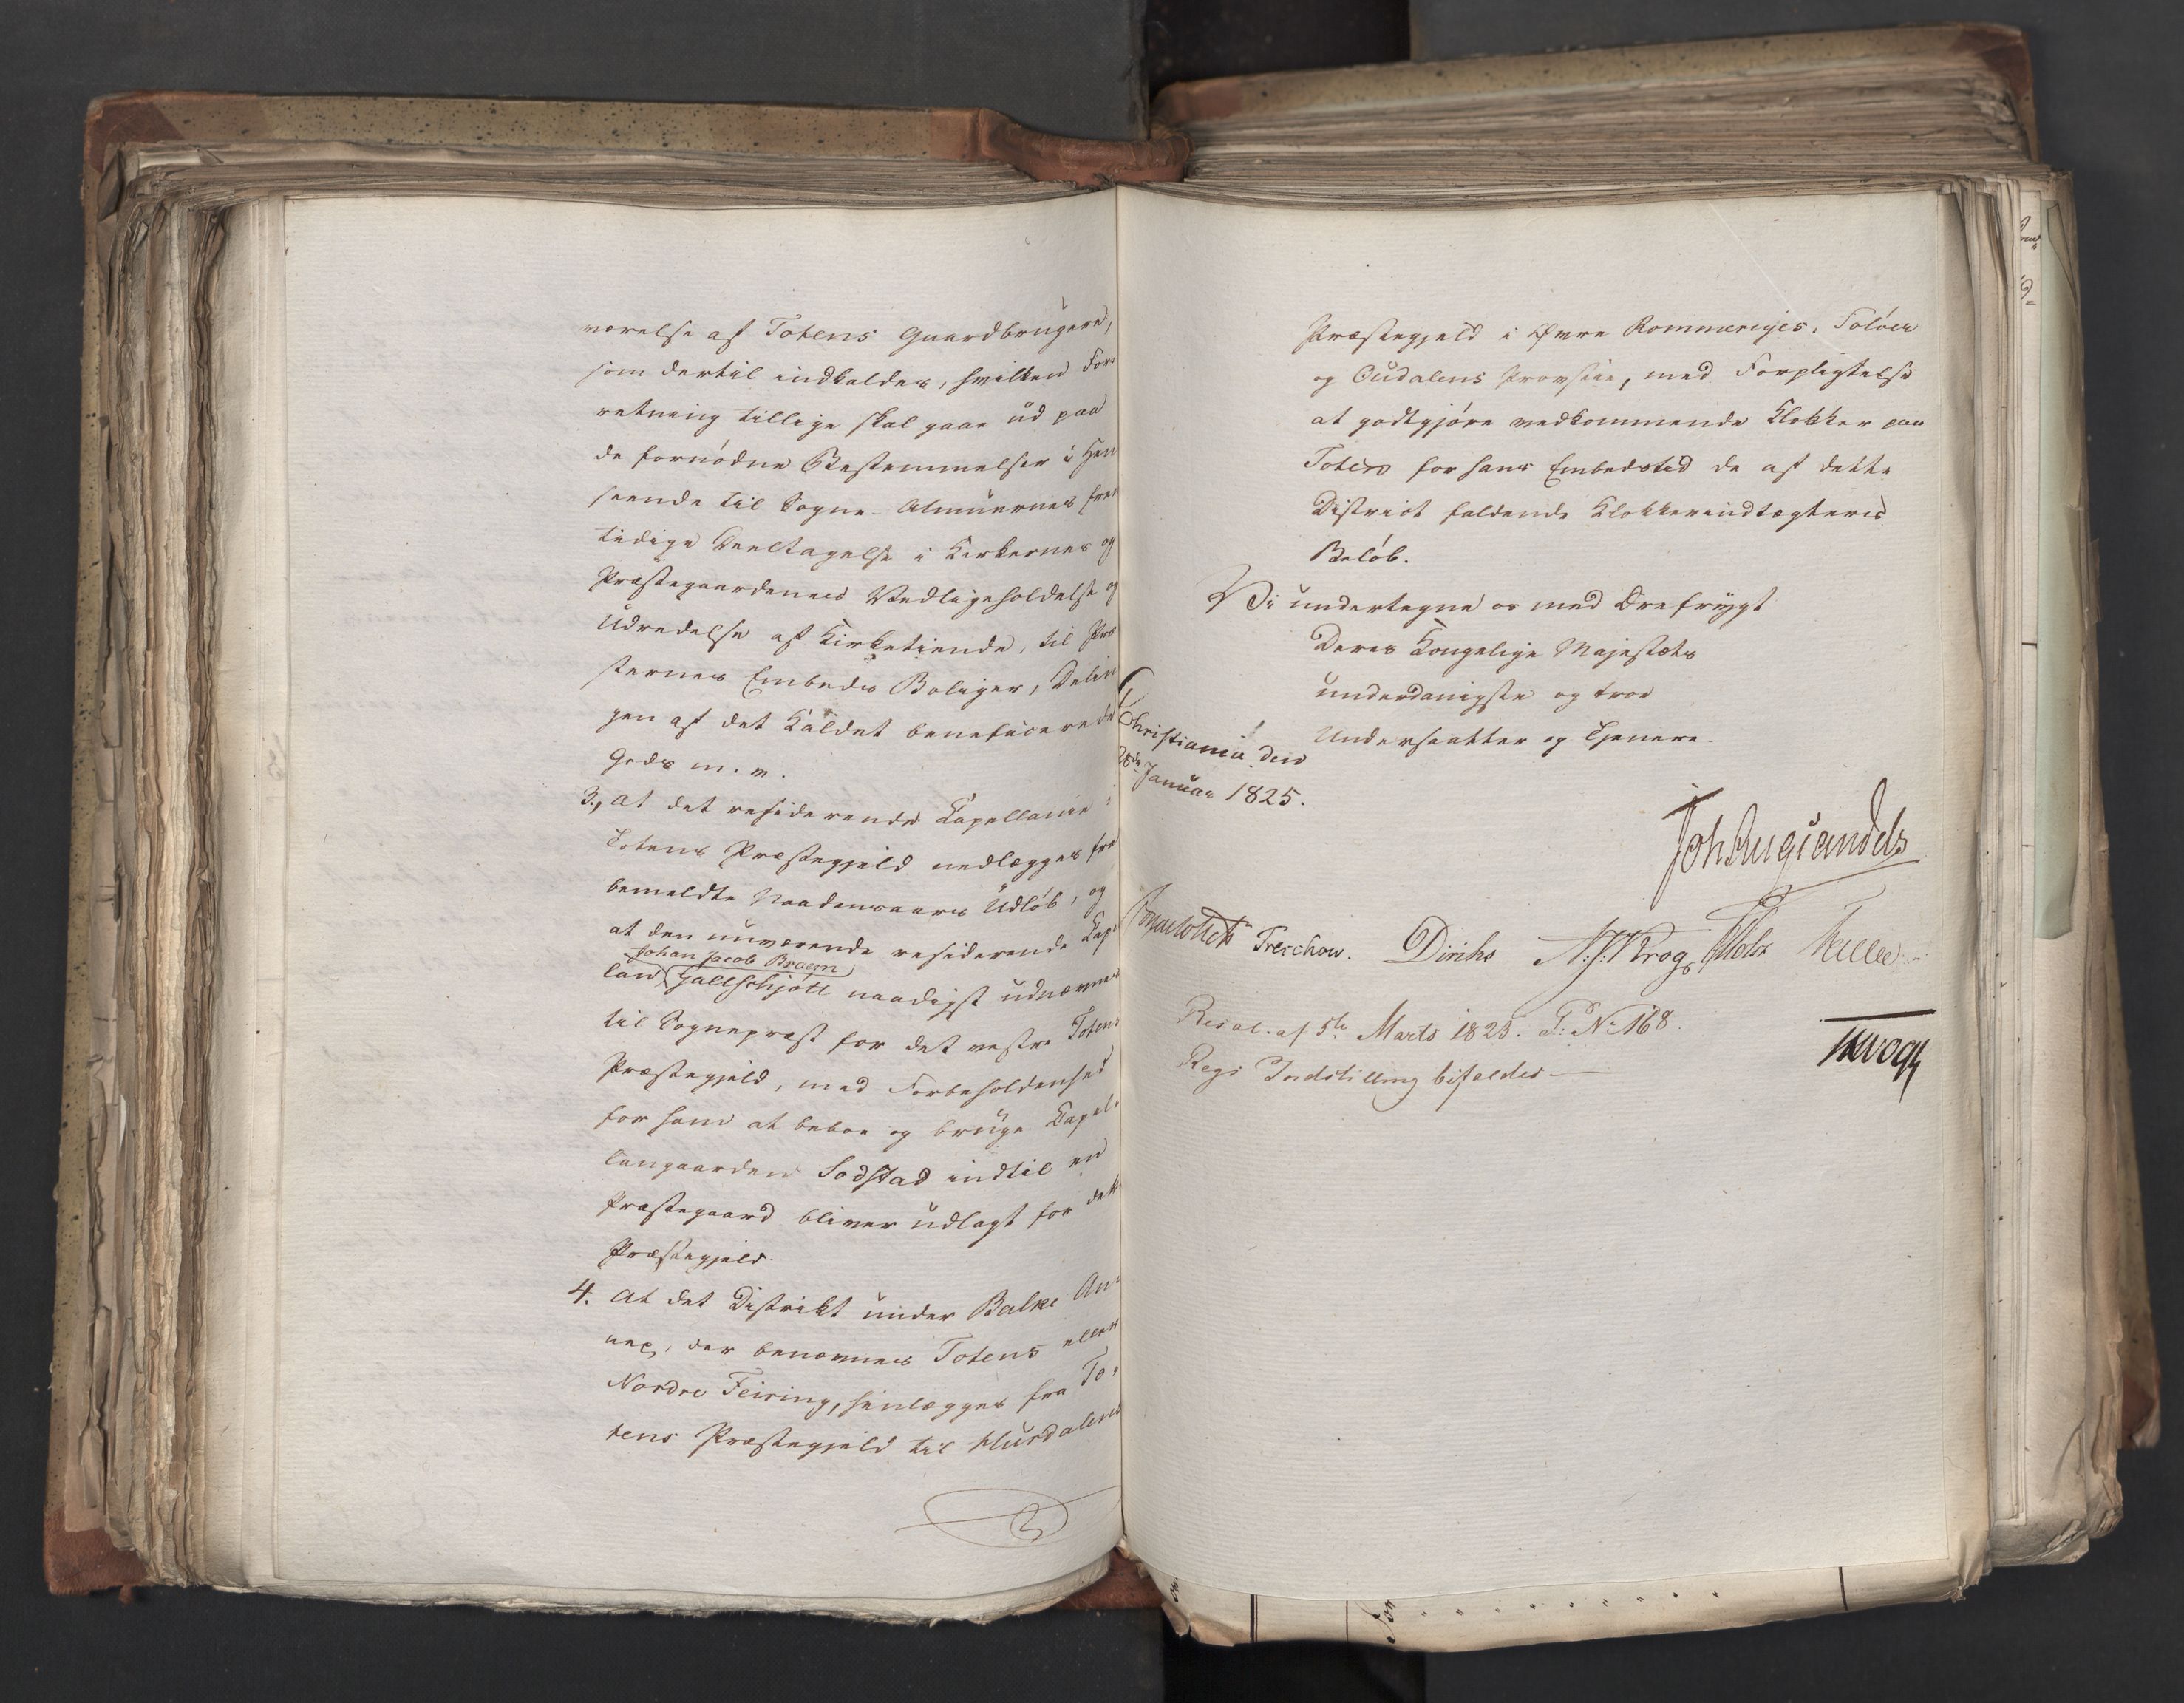 værelse af Totens Gaardbrugere,
som dertil indkaldes, hvilken For-
retning tillige skal gaae ud paa
de fornödne Bestemmelser i Hen
seende til Sogne-Almuernes frem
tidige Deeltagelse i Kirkernes og
Præstegaardenes Vedligeholdelse og
Udredelse af Kirketiende, til Præ
sternes Embeds Boliger, Delin
gen af det Kaldet beneficerede
Gods m. v.
3., at det residerende Kapellanie i
Totens Præstegjeld nedlægges fra
bemeldte Naadensaars Udlöb, og
at den nuværende residerende Kapel
Johan Jacob Braem
lan Hallschjött naadigst udnævnes
til Sognepræst for det vestre Totens
Præstegjeld, med Forbeholdenhed
for ham at beboe og bruge Kapel-
langaarden Sodstad indtil en
Præstegaard bliver udlagt for dette
Præstegjeld.
4. at det Distrikt under Balke An-
nex, der benævnes Totens eller
Nordre Feiring, henlægges fra To-
tens Præstegjeld til Hurdalens
Præstegjeld i Övre Rommeriges, Solöer
og Oudalens Provstie, med Forpligtelse
at godtgjöre vedkommende Klokker paa
Toten for hans Embedstid de af dette
District faldende Klokkerindtægters
Belöb.
Vi undertegne os med Ærefrygt
Deres Kongelige Majestæts
underdanigste og troe
Undersaatter og Tjenere.
Christiania den
28de Januar 1825.
Joh Aug Sandels
Treschow. Diriks N.J. Krog, Holst
Resol. af 5te Marts 1825. P: No 168.
Regs Indstilling bifaldes